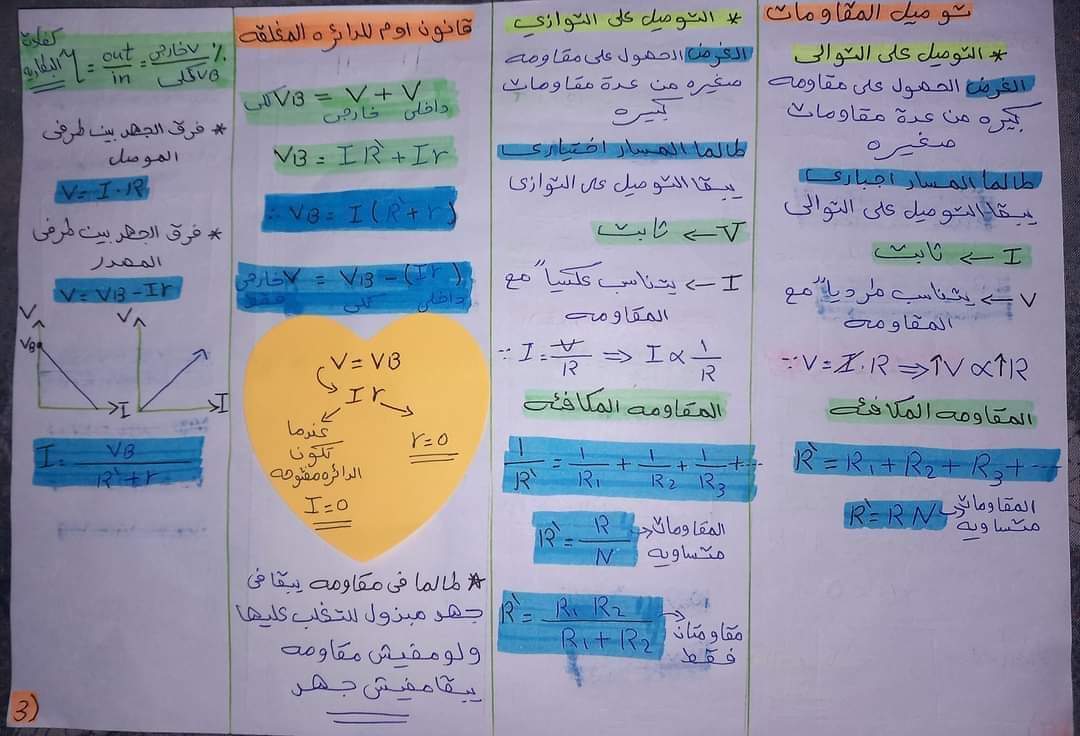 توصيل المقاومات
* التوصيل على التوالى
الغرض الحصول على مقاومه
كبيره من عدة مقاومات
صغيره
طالما المسار اجبارى
يبقا التوصيل على التوالى
I ← ثابت
V ← يتناسب طرديا" مع
المقاومه
∵ V = I . R ⟹ ↑V ∝ ↑R
المقاومه المكافئه
R` = R1 + R2 + R3 + ...
R` = R N ← المقاومات
متساويه
* التوصيل على التوازي
الغرض الحصول على مقاومه
صغيره من عدة مقاومات
كبيره
طالما المسار اختيارى
يبقا التوصيل على التوازى
V ← ثابت
I ← يتناسب عكسيا" مع
المقاومه
∵ I = V/R ⟹ I ∝ 1/R
المقاومه المكافئه
1/R` = 1/R1 + 1/R2 + 1/R3 + ...
R` = R/N ← المقاومات
متساويه
R` = R1 R2 / R1 + R2 → مقاومتان
فقط
قانون اوم للدائره المغلقه
كلى VB = V + V
خارجى داخلى
VB = I R` + I r
∴ VB = I ( R` + r )
خارجى V = VB - ( I r )
فقط كلى داخلى
V = VB
I r
عندما
تكون
الدائره مفتوحه
I = 0
r = 0
* طالما فى مقاومه يبقا فى
جهد مبزول للتغلب عليها
ولو مفيش مقاومه
يبقا مفيش جهد
كفاءة
البطاريه η = out/in = V خارجى / VB كلى %
* فرق الجهد بين طرفى
الموصل
V = I . R
* فرق الجهد بين طرفى
المصدر
V = VB - I r
V
VB
I
V
I
I = VB / R` + r
3)